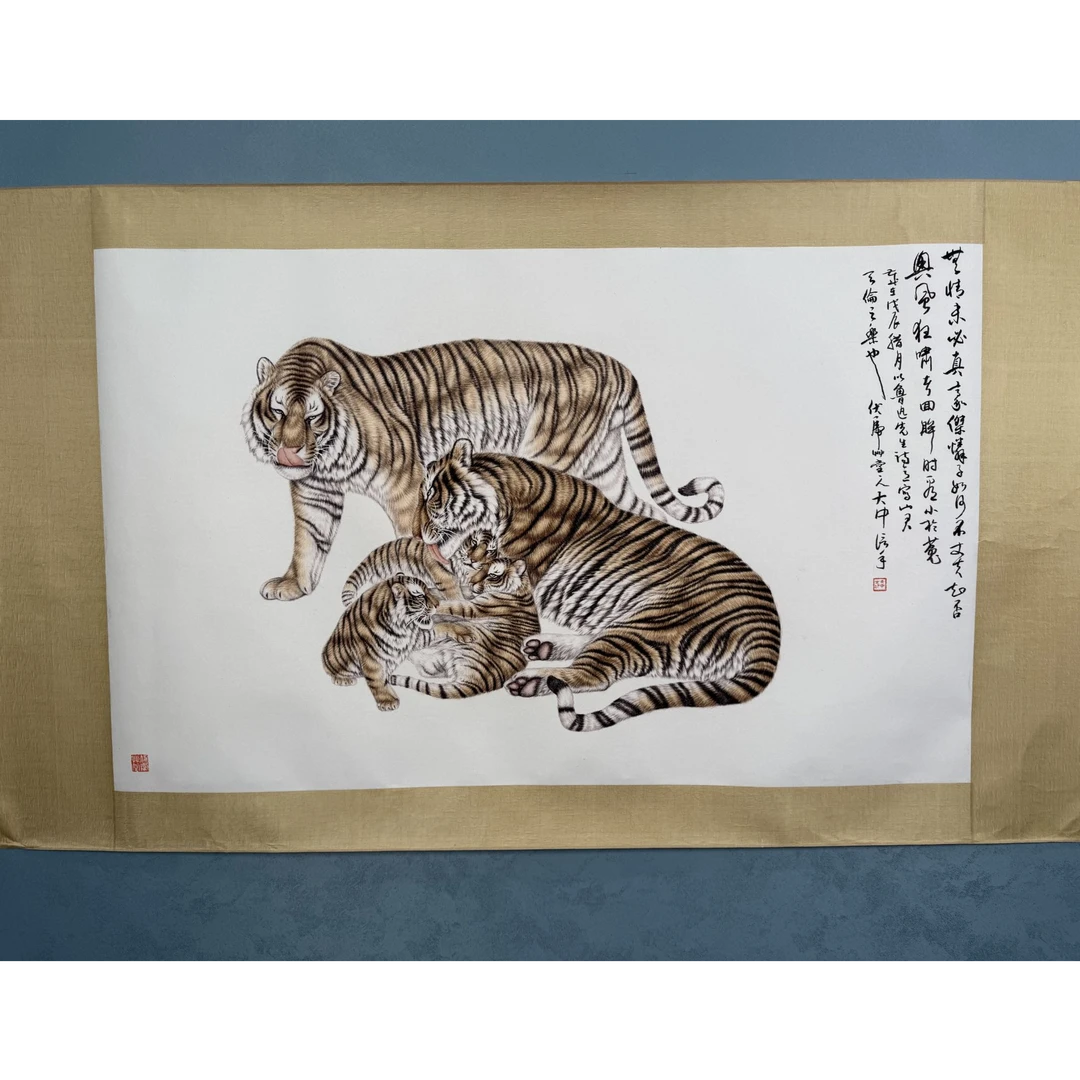 無情未必真豪傑憐子如何不丈夫知否
興風狂嘯者回眸時看小於菟
歲在戊辰腊月以魯迅先生詩意寫山君
天倫之樂也伏虎艸堂人大中信手